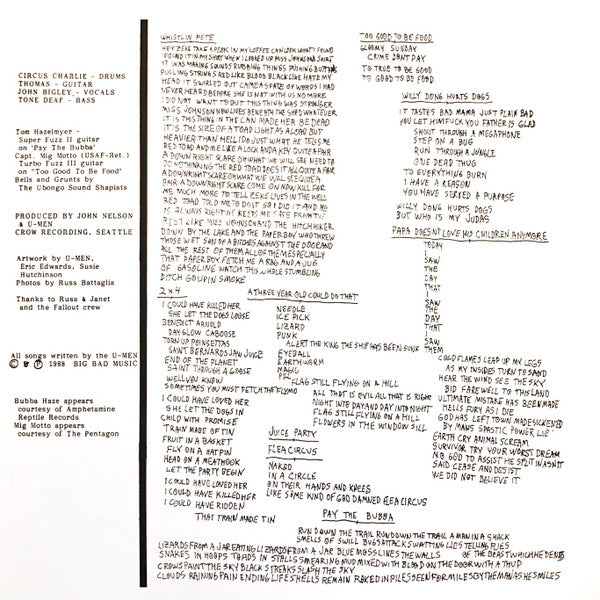 CIRCUS CHARLIE - DRUMS
THOMAS - GUITAR
JOHN BIGLEY, - VOCALS
TONE DEAF - BASS
Tom Hazelmyer -
Super Fuzz II guitar
on 'Pay The Bubba'
Capt. Mig Motto (USAF-Ret.)
Turbo Fuzz III guitar
on "Too Good To Be Food"
Bells and Grunts by
The Ubongo Sound Shapists
PRODUCED BY JOHN NELSON
& U-MEN
CROW RECORDING, SEATTLE
Artwork by U-MEN,
Eric Edwards, Susie
Hutchinson
Photos by Russ Battaglia
Thanks to Russ & Janet
and the Fallout crew
All songs written by the U-MEN
© & ℗ 1988 BIG BAD MUSIC
Bubba Haze appears
courtesy of Amphetamine
Reptile Records
Mig Motto appears
courtesy of The Pentagon
WHISTLIN PETE
HEY ZEKE TAKE A PEEK IN MY COFFEE CAN LOOK WHAT I FOUND
I FOUND IT IN MY SHORT WHEN I LOOKED UP MISS JOHNSONS SKIRT
IT WAS MAKING SOUNDS RUBBING THINGS PUSHING BUTTONS
PULLING STRINGS RED LIKE BLOOD BLACK LIKE HATE MY
HEAD IT SWIRLED OUT CAME A STATE OF WORDS I HAD
NEVER HEARD BEFORE SHE IS NOT WITH US NO MORE
I DID NOT WANT TO BUT THIS THING WAS STRONGER
MISS JOHNSON NOW LIVES BENEATH THE SHED WHATEVER
IT IS THIS THING IN THE CAN MADE HER BE DEAD
IT IS THE SIZE OF A TOAD LIGHT AS ALSAD BUT
HEAVIER THAN HELL I DO JUST WHAT HE TELLS ME
RED TOAD AND ME LIKE A LOCK AND A KEY QUITE A PAIR
A DOWNRIGHT SCARE OH WHAT WE WILL SEE NEED TO
DO NOTHIN THE RED TOAD DOES IT ALL QUITE A PAIR
A DOWNRIGHT SCARE OH WHAT WE WILL SEE QUITE A
PAIR A DOWNRIGHT SCARE COME ON NOW KILL FOR
ME MUCH MORE TO TELL ZEKE LIVES IN THE WELL
RED TOAD TOLD ME TO DO IT SO I DID IT AND HE
IS ALWAYS RIGHT HE KEEPS ME SAFE FROM THE
REST LIKE MISS JOHNSON AND THE HITCHHIKER
DOWN BY THE LAKE AND THE PAPERBOY WHO THREW
THOSE WET SON OF A BITCHES AGAINST THE DOOR AND
ALL THE REST OF THEM ALL OF THEM ESPECIALLY
THAT PAPERBOY FETCH ME A RAG AND A JUG
OF GASOLINE WATCH THIS WHOLE STUMBLING
DITCH GO UP IN SMOKE
2 x 4
I COULD HAVE KILLED HER
SHE LET THE DOGS LOOSE
BENEDICT ARNOLD
DAY GLOW CABOOSE
TORN UP POINSETTAS
SAINT BERNARDS JAW JUICE
END OF THE PLANET
SAINT THROUGH A GOOSE
WELL YOU KNOW
SOMETIMES YOU MUST FETCH THAT
I COULD HAVE LOVED HER
SHE LET THE DOGS IN
CHILD WITH PROMISE
TRAIN MADE OF TIN
FRUIT IN A BASKET
FLY ON A HATPIN
HEAD ON A MEATHOOK
LET THE PARTY BEGIN
I COULD HAVE LOVED HER
I COULD HAVE KILLED HER
I COULD HAVE RIDDEN
THAT TRAIN MADE TIN
A THREE YEAR OLD COULD DO THAT
NEEDLE
ICE PICK
LIZARD
PUNK
ALERT THE KING THE SHIP HAS BEEN SUNK
EYEBALL
EARTHWORM
MAGIC
PPL
FLAG STILL FLYING ON A HILL
ALL THAT IS EVIL ALL THAT IS RIGHT
NIGHT INTO DAY AND DAY INTO NIGHT
FLAG STILL FLYING ON A HILL
FLOWERS IN THE WINDOW SILL
JUICE PARTY
FLEA CIRCUS
NAKED
IN A CIRCLE
ON THEIR HANDS AND KNEES
LIKE SOME KIND OF GOD DAMNED FLEA CIRCUS
TOO GOOD TO BE FOOD
GLOOMY SUNDAY
CRIME DONT PAY
TO TRUE TO BE GOOD
TO GOOD TO BE FOOD
WILLY DONG HURTS DOGS
IT TASTES BAD MAMA JUST PLAIN BAD
YOU LET HIM FUCK YOU FATHER IS GLAD
SHOUT THROUGH A MEGAPHONE
STEP ON A BUG
RUN THROUGH A JUNGLE
ONE DEAD THUG
TO EVERYTHING BURN
I HAVE A REASON
YOU HAVE SERVED A PURPOSE
WILLY DONG HURTS DOGS
BUT WHO IS MY JUDAS
PAPA DOESNT LOVE HIS CHILDREN ANYMORE
TODAY
I
SAW
THE
DAY
THAT
I
SAW
THE
DAY
THAT
I
SAW
THEM
COLD FLAMES LEAP UP MY LEGS
AS MY INSIDES TURN TO SAND
HEAR THE WIND SEE THE SKY
BID FAREWELL TO THIS LAND
ULTIMATE MISTAKE HAS BEEN MADE
HELLS FURY AS I DIE
GOD HAS LEFT TOWN MADE SICKENED
BY MANS SPASTIC POWER LIE
EARTH CRY ANIMAL SCREAM
SURVIVOR TRY YOUR WORST DREAM
NO GOD TO ASSIST HE SPLIT IN A SNIT
SAID CEASE AND DESIST
WE DID NOT BELIEVE IT
PAY THE BUBBA
RUN DOWN THE TRAIL RUN DOWN THE TRAIL A MAN IN A SHACK
SMELLS OF SWILL BUGS ATTACK SWATTING LIES TELLING FLIES
LIZARDS FROM A JAR EATING LIZARDS FROM A JAR BLUE MOSS LINES THE WALLS OF THE BEAST WHICH HE DENIES
SNAKES IN HOOPS TOADS IN STALLS SMEARING MUD MIXED WITH BLOOD ON THE DOOR WITH A THUD
CROWS PAINT THE SKY BLACK STREAKS SLASH THE SKY
CLOUDS RAINING PAIN ENDING LIFE SHELLS REMAIN RAKED IN PILES SEEN FOR MILES BY THE MAN AS HE SMILES